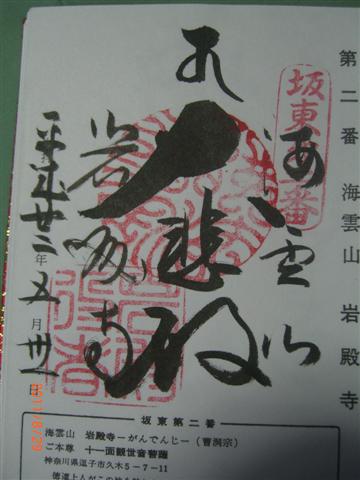 第二番 海雲山 岩殿寺
坂東二番
海雲山
奉
大悲殿
岩殿寺
平成廿二年五月廿一日
坂東第二番
海雲山 岩殿寺－がんでんじ－(曹洞宗)
ご本尊 十一面観世音菩薩
神奈川県逗子市久木5－7－11
徳道上人がこの地を
2011/6/29